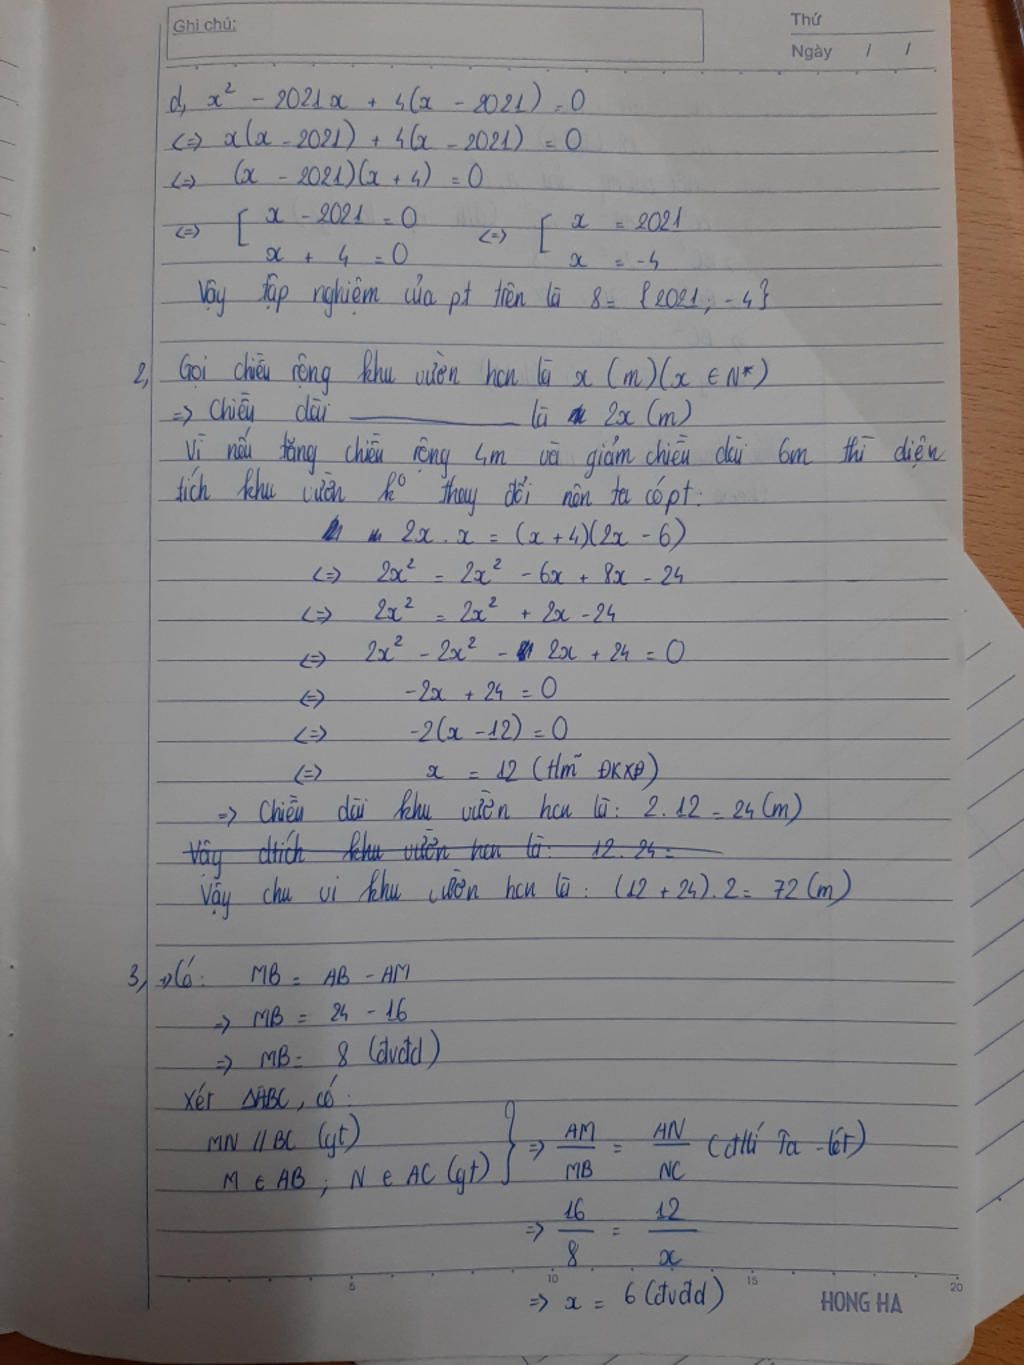 Ghi chú:
Thứ
Ngày / /
d, x² - 2021x + 4(x - 2021) = 0
<=> x(x - 2021) + 4(x - 2021) = 0
<=> (x - 2021)(x + 4) = 0
<=> [ x - 2021 = 0 <=> [ x = 2021
x + 4 = 0 x = -4
Vậy tập nghiệm của pt trên là S = {2021; -4}
2, Gọi chiều rộng khu vườn hcn là x (m)(x ∈ N*)
=> Chiều dài ________ là 2x (m)
Vì nếu tăng chiều rộng 4m và giảm chiều dài 6m thì diện
tích khu vườn k⁰ thay đổi nên ta có pt:
2x . x = (x + 4)(2x - 6)
<=> 2x² = 2x² - 6x + 8x - 24
<=> 2x² = 2x² + 2x - 24
<=> 2x² - 2x² - 2x + 24 = 0
<=> -2x + 24 = 0
<=> -2(x - 12) = 0
<=> x = 12 (t/m ĐKXĐ)
=> Chiều dài khu vườn hcn là: 2 . 12 = 24 (m)
Vậy dtích khu vườn hcn là: 12 . 24 =
Vậy chu vi khu vườn hcn là: (12 + 24) . 2 = 72 (m)
3, Có: MB = AB - AM
=> MB = 24 - 16
=> MB = 8 (đvđd)
Xét ΔABC, có:
MN // BC (gt) } => AM/MB = AN/NC (đlí Ta-lét)
M ∈ AB ; N ∈ AC (gt)
=> 16/8 = 12/x
5 10 15 20
=> x = 6 (đvđd)
HONG HA